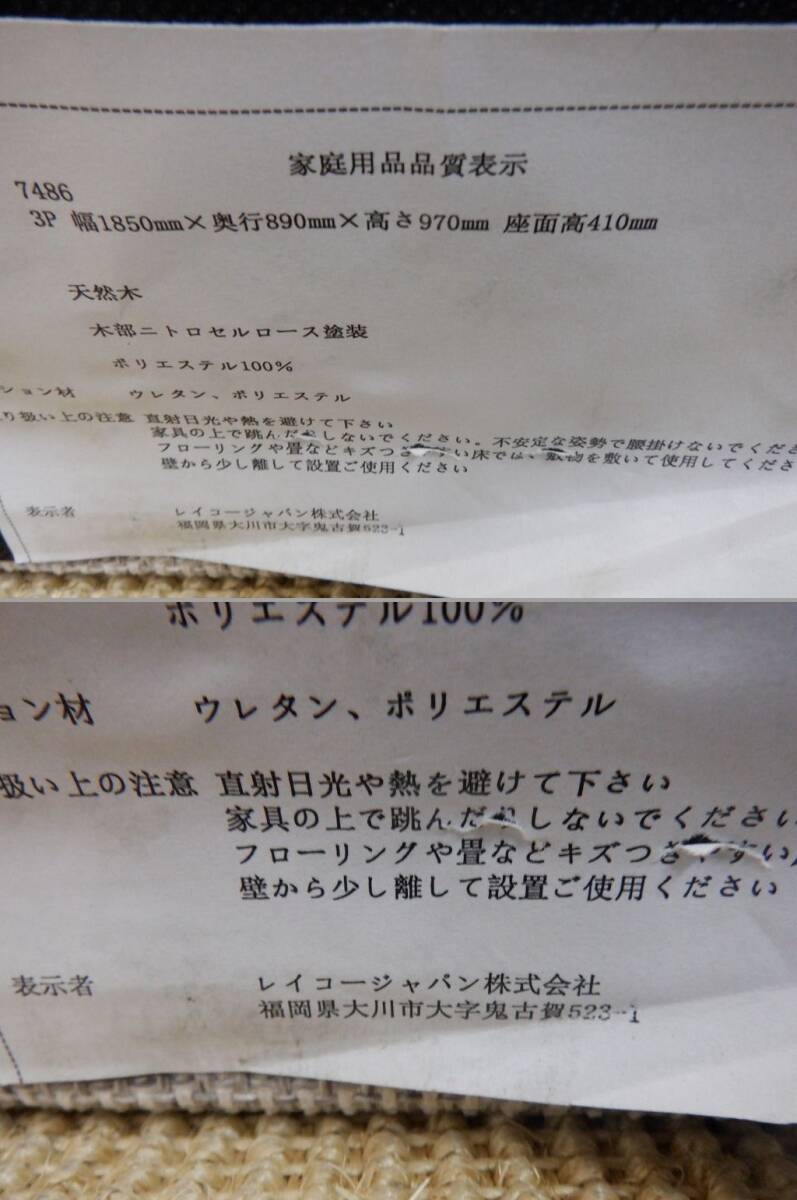 家庭用品品質表示
7486
3P 幅1850mm×奥行890mm×高さ970mm 座面高410mm
天然木
木部ニトロセルロース塗装
ポリエステル100%
ション材 ウレタン、ポリエステル
り扱い上の注意 直射日光や熱を避けて下さい
家具の上で跳んだ しないでください。不安定な姿勢で腰掛けないでくださ
フローリングや畳などキズつきやすい床では、敷物を敷いて使用してくださ
壁から少し離して設置ご使用ください
表示者 レイコージャパン株式会社
福岡県大川市大字鬼古賀523-1
ポリエステル100%
ョン材 ウレタン、ポリエステル
扱い上の注意 直射日光や熱を避けて下さい
家具の上で跳んだ しないでください
フローリングや畳などキズつきやすい
壁から少し離して設置ご使用ください
表示者 レイコージャパン株式会社
福岡県大川市大字鬼古賀523-1